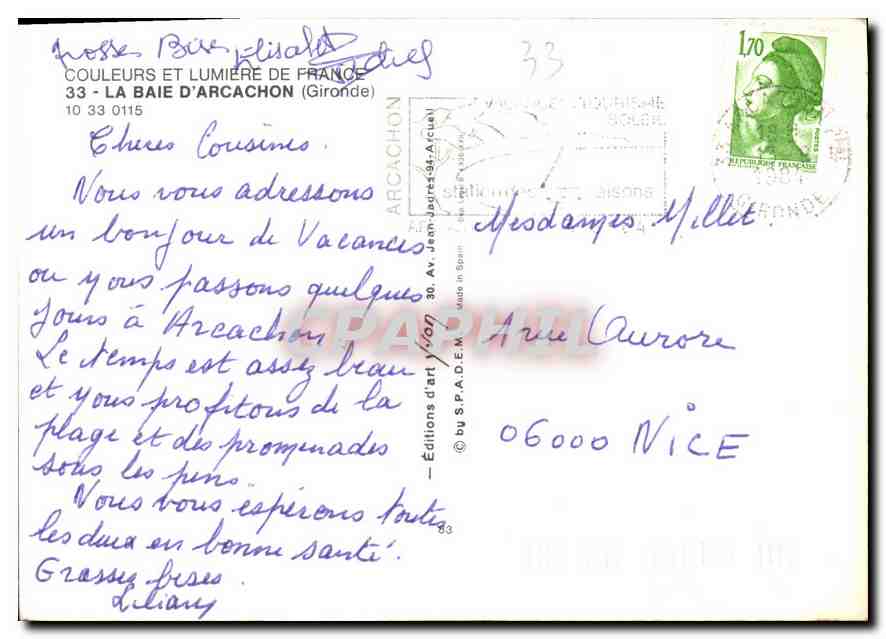 Grosses Bises Elisabeth
COULEURS ET LUMIERE DE FRANCE
33 - LA BAIE D'ARCACHON (Gironde)
10 33 0115
Cheres Cousines.
Nous vous adressons
un bonjour de Vacances
ou nous passons quelques
Jours à Arcachon.
Le temps est assez beau
et nous profitons de la
plage et des promenades
sous les pins.
Nous vous espérons toutes
les deux en bonne santé.
Grosses bises.
Liliane
— Éditions d'art Yvon 30. Av. Jean-Jaurès-94-Arcueil
© by S.P.A.D.E.M. Made in Spain
83
33
ARCACHON
VACANCES TOURISME
SOLEIL
1,70
POSTES
REPUBLIQUE FRANÇAISE
18
GIRONDE
Mesdames Millet
1 rue Aurore
06000 NICE
CPAPHIL